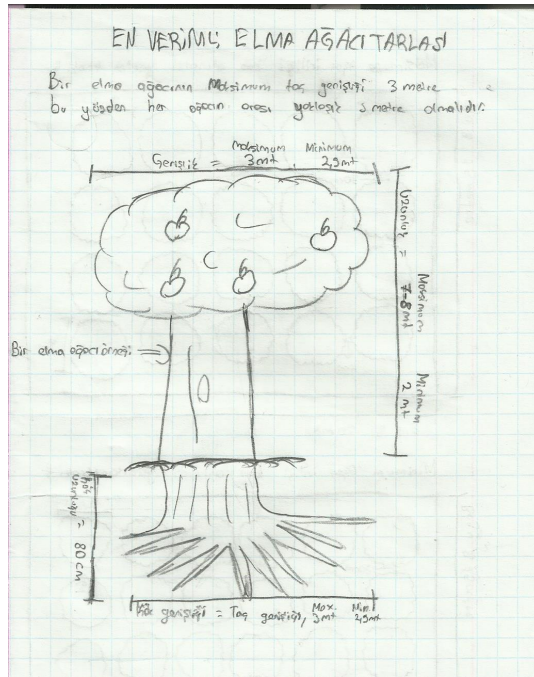 EN VERİMLİ ELMA AĞACI TARLASI
Bir elma ağacının Maksimum taç genişliği 3 metre
bu yüzden her ağacın arası yaklaşık 3 metre olmalıdır.
Genişlik = Maksimum 3mt, Minimum 2,5mt
Uzunluk = Maksimum 7-8mt Minimum 2 mt
Bir elma ağacı örneği =>
Kök uzunluğu = 80 cm
Kök genişiği = Taç genişiği, Max. 3mt Min. 2,5mt